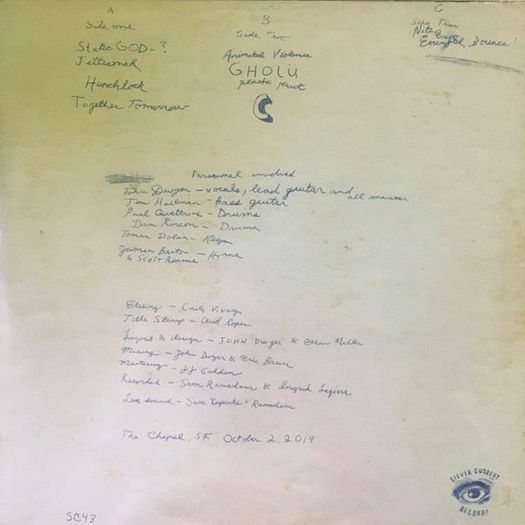 A
Side one
Static GOD - ?
Jettisoned
Hunchlock
Together Tomorrow
B
Side Two
Animated Violence
GHOLÜ
plastic plant
C
Side Three
Encrypted Bounce!
Personnel involved
John Dwyer - vocals, lead guitar and all manner
Tom Hellman - Bass guitar
Paul Quattrone - Drums
Dan Rincon - Drums
Tomas Dolas - Keys
- Horns
& Scott
Etching -
Title Stamp -
Layout & design - JOHN Dwyer & Miller
Mixing - John Dwyer & Eric Bauer
Mastering - JJ Golden
Recorded - Sam Ramadan & Ingrid
Live sound - Sam "Ramadan
The Chapel, SF October 2, 2019
SC43
SILVER CURRENT
RECORDS